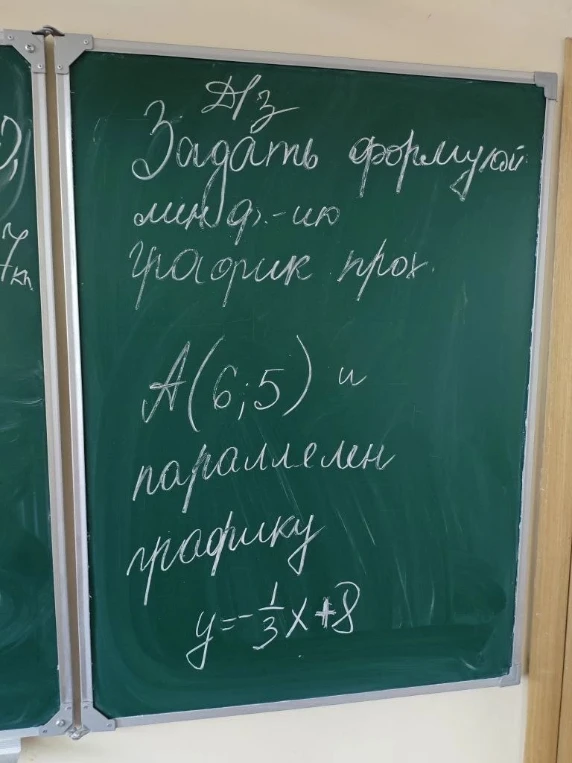 Д/з
Задать формулой
лин ф.-ию
график прох.
А(6;5) и
параллелен
графику
y=-1/3x+8